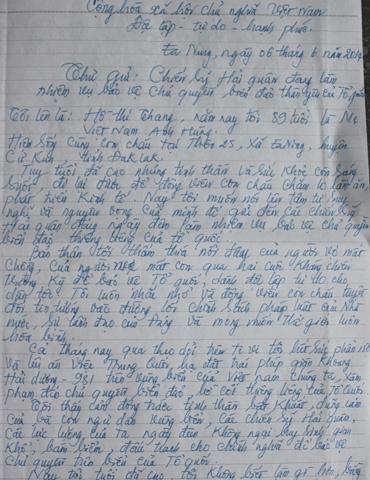 Cộng hòa xã hội chủ nghĩa Việt Nam
Độc lập - tự do - hạnh phúc.
Ea Nung, ngày 06 tháng 6 năm 2014
Thư gửi: Chiến sỹ Hải quân đang làm
nhiệm vụ bảo vệ chủ quyền biển đảo thân yêu của Tổ quốc
Tôi tên là: Hồ thị Thang, năm nay tôi 89 tuổi là Mẹ
Việt Nam Anh Hùng.
Hiện sống cùng con cháu tại Thôn 25, Xã Ea Ning, huyện
Cư Kuin tỉnh Đak Lak.
Tuy tuổi đã cao nhưng tinh thần và sức khỏe còn sáng
suốt, để lại được để động viên con cháu chăm lo làm ăn,
phát triển kinh tế. Nay tôi muốn nói lên tâm tư suy
nghĩ và nguyện vọng của mình để gửi đến các chiến sỹ
Hải quân đang ngày đêm làm nhiệm vụ bảo vệ chủ quyền
biển đảo thiêng liêng của tổ quốc.
Bản thân tôi thấm thía nỗi đau của người vợ mất
chồng, của người mẹ mất con qua hai cuộc kháng chiến
trường kỳ để bảo vệ Tổ quốc, dành độc lập tự do cho
dân tộc. Tôi luôn nhắc nhở và động viên con cháu tuyệt
đối tin tưởng vào đường lối chính sách pháp luật của Nhà
nước, sự lãnh đạo của Đảng và mong muốn thế giới luôn
hòa bình.
Cả tháng nay qua theo dõi trên ti vi tôi hết sức phẫn nộ
và lên án việc Trung Quốc hạ đặt trái phép giàn khoang
Hải dương - 981 trên vùng biển của Việt Nam chúng ta, xâm
phạm đến chủ quyền biển đảo, bờ cõi thiêng liêng của Tổ Quốc.
Tôi thấu cảm động trước tinh thần bất khuất, dũng cảm
của bà con ngư dân vùng biển, các chiến sỹ Hải quân,
các lực lượng của ta ngày đêm không ngại hy sinh gian
khổ, bám biển, đấu tranh cho chính nghĩa để bảo vệ
chủ quyền trên biển của Tổ quốc.
Nay tôi tuổi đã cao, tôi không biết làm gì hơn, bằng